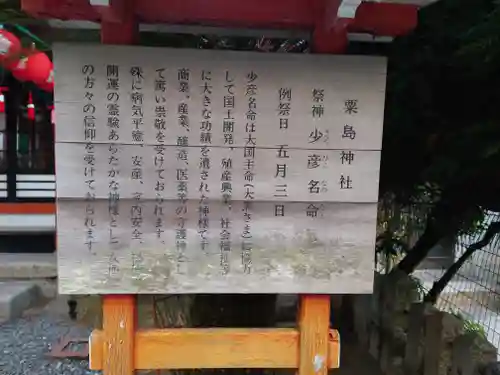 粟島神社
祭神 少彦名命
例祭日 五月三日
少彦名命は大国主命(大黒さま)に協力
して国土開発、殖産興業、社会福祉等
に大きな功績を遺された神様です。
商業、産業、醸造、医薬等の守護神とし
て篤い崇敬を受けておられます。
殊に病気平癒、安産、家内安全、
開運の霊験あらたかな神様として
の方々の信仰を受けておられます。